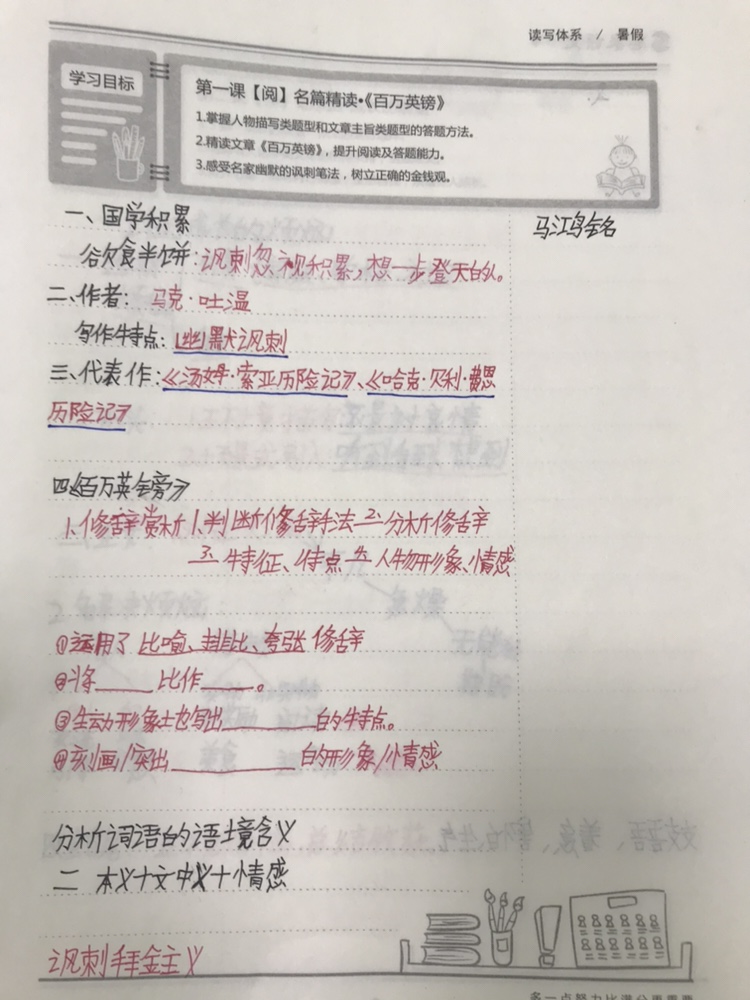 读写体系 / 暑假
学习目标
第一课【阅】名篇精读·《百万英镑》
1.掌握人物描写类题型和文章主旨类题型的答题方法。
2.精读文章《百万英镑》，提升阅读及答题能力。
3.感受名家幽默的讽刺笔法，树立正确的金钱观。
一、国学积累
欲食半饼：讽刺忽视积累，想一步登天的人。
二、作者：马克·吐温
写作特点：幽默讽刺
三、代表作：《汤姆·索亚历险记》、《哈克·贝利·费恩
历险记》
四《百万英镑》
1、修辞赏析 1、判断修辞手法 二 分析修辞
三、特征、特点 4 人物形象、情感
①运用了 比喻、排比、夸张 修辞
②将____比作____。
③生动形象地写出________的特点。
④刻画/突出________的形象/情感
分析词语的语境含义
二 本义+文中义+情感
讽刺拜金主义